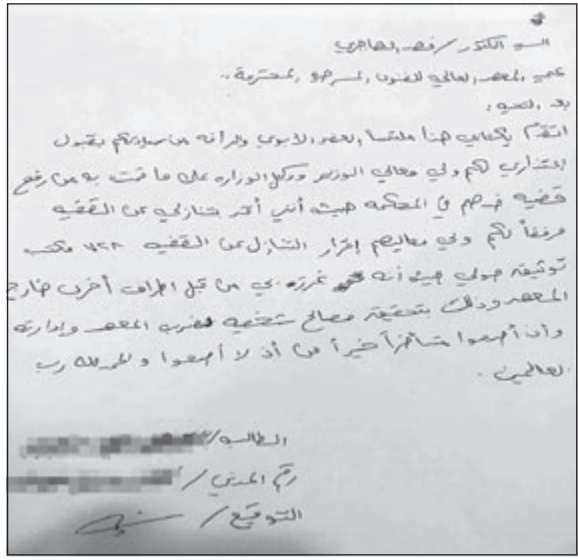 السيد الدكتور / فهد الهاجري
عميد المعهد العالي للفنون المسرحية المحترم ..
بعد التحية ،
أتقدم بكتابي هذا ملتمساً العفو الأبوي والرأفة من سيادتكم بقبول
إعتذاري لكم ولي معالي الوزير ووكيل الوزارة على ما قمت به من رفع
قضيه ضدهم في المحكمه حيث أنني أقر بتنازلي عن القضيه
مرفقاً لكم ولي معاليهم إقرار التنازل عن القضيه ٧٢٨ مكتب
توثيقه حولي حيث أنه غرر بي من قبل اطراف أخرى خارج
المعهد وذلك بتحقيق مصالح شخصيه لضرب المعهد وإدارته
وأن أصحوا متأخراً خيراً من أن لا أصحوا والحمدلله رب
العالمين .
الطالب /
رقم المدني /
التوقيع /